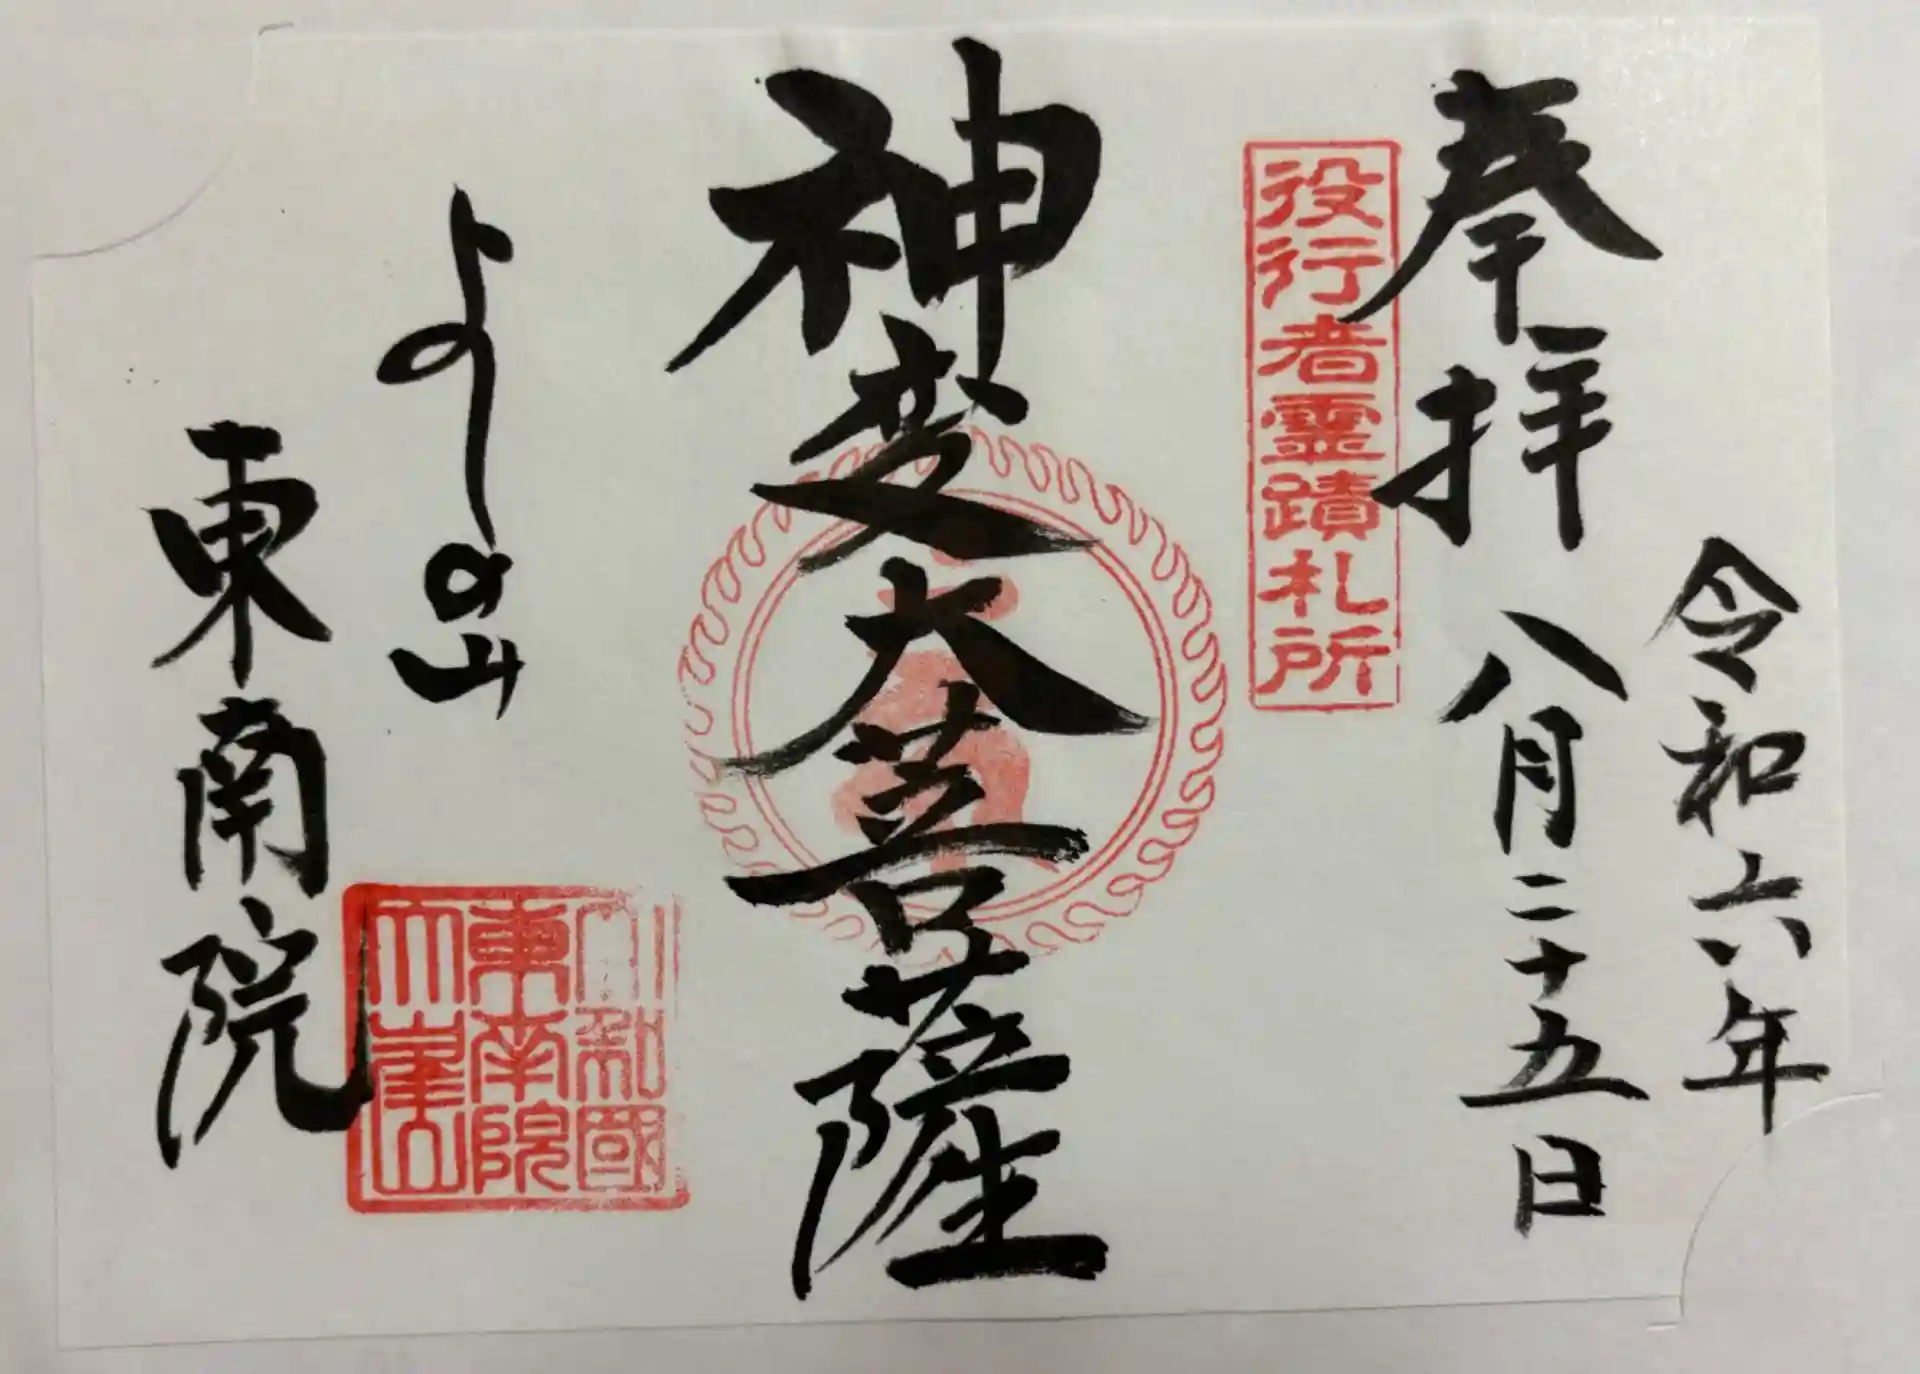 令和六年
奉拝 八月二十五日
役行者霊蹟札所
神変大菩薩
よしの山
東南院
大和國
東南院
大峯山